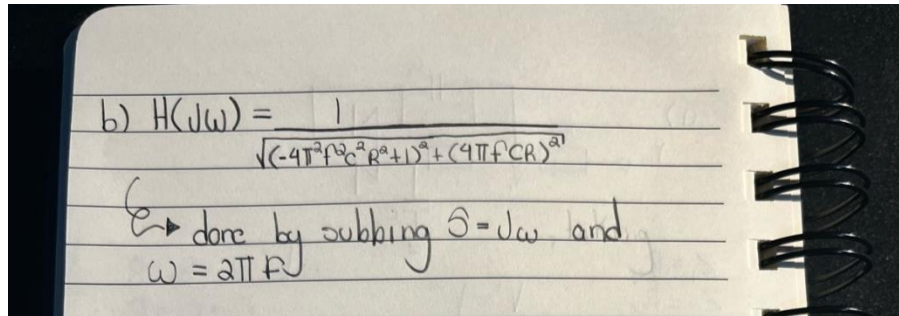 b) H(Jω) = 1
√(-4π²f²c²R²+1)² + (4πfCR)²
↳ done by subbing S=Jω and
ω = 2πf